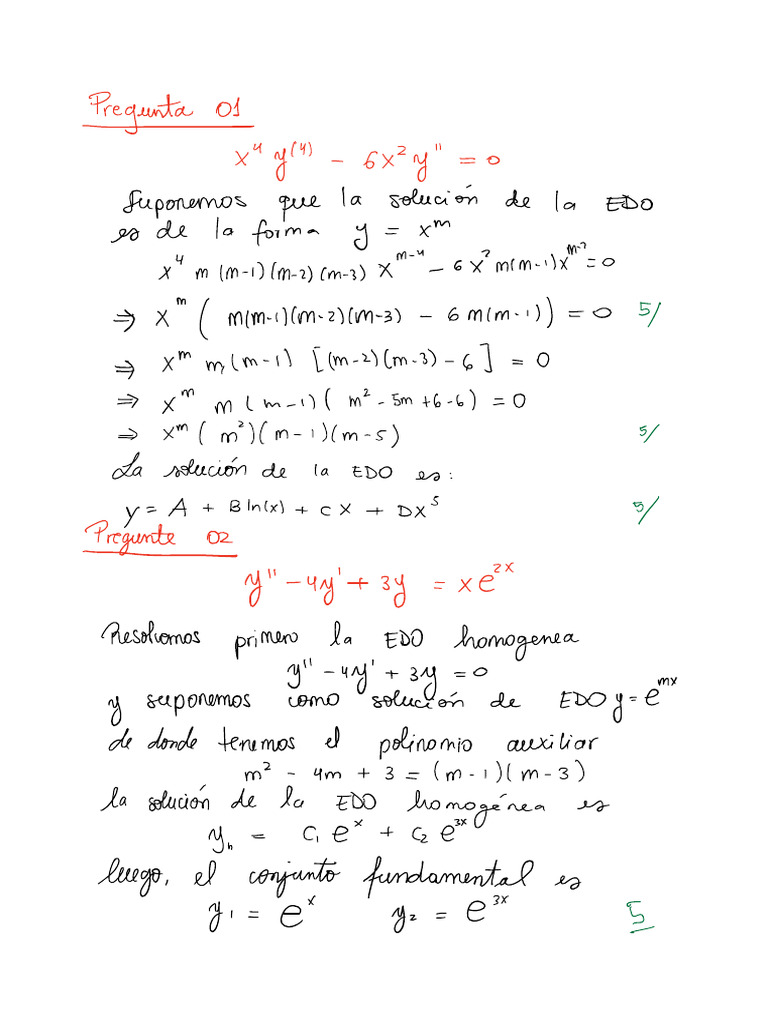 Pregunta 01
x⁴ y⁽⁴⁾ - 6x² y'' = 0
Suponemos que la solución de la EDO
es de la forma y = xᵐ
x⁴ m(m-1)(m-2)(m-3) x^{m-4} - 6x² m(m-1)x^{m-2} = 0
⇒ xᵐ ( m(m-1)(m-2)(m-3) - 6m(m-1) ) = 0 5/
⇒ xᵐ m(m-1) [(m-2)(m-3)-6] = 0
⇒ xᵐ m(m-1)( m² - 5m + 6 - 6) = 0
⇒ xᵐ ( m²)(m-1)(m-5) 5/
La solución de la EDO es:
y = A + B ln(x) + Cx + Dx⁵ 5/
Pregunte 02
y'' - 4y' + 3y = xe^{2x}
Resolvamos primero la EDO homogenea
y'' - 4y' + 3y = 0
y suponemos como solución de EDO y = e^{mx}
de donde tenemos el polinomio auxiliar
m² - 4m + 3 = (m-1)(m-3)
la solución de la EDO homogénea es
y_h = c₁ e^x + c₂ e^{3x}
luego, el conjunto fundamental es
y₁ = e^x y₂ = e^{3x} 5